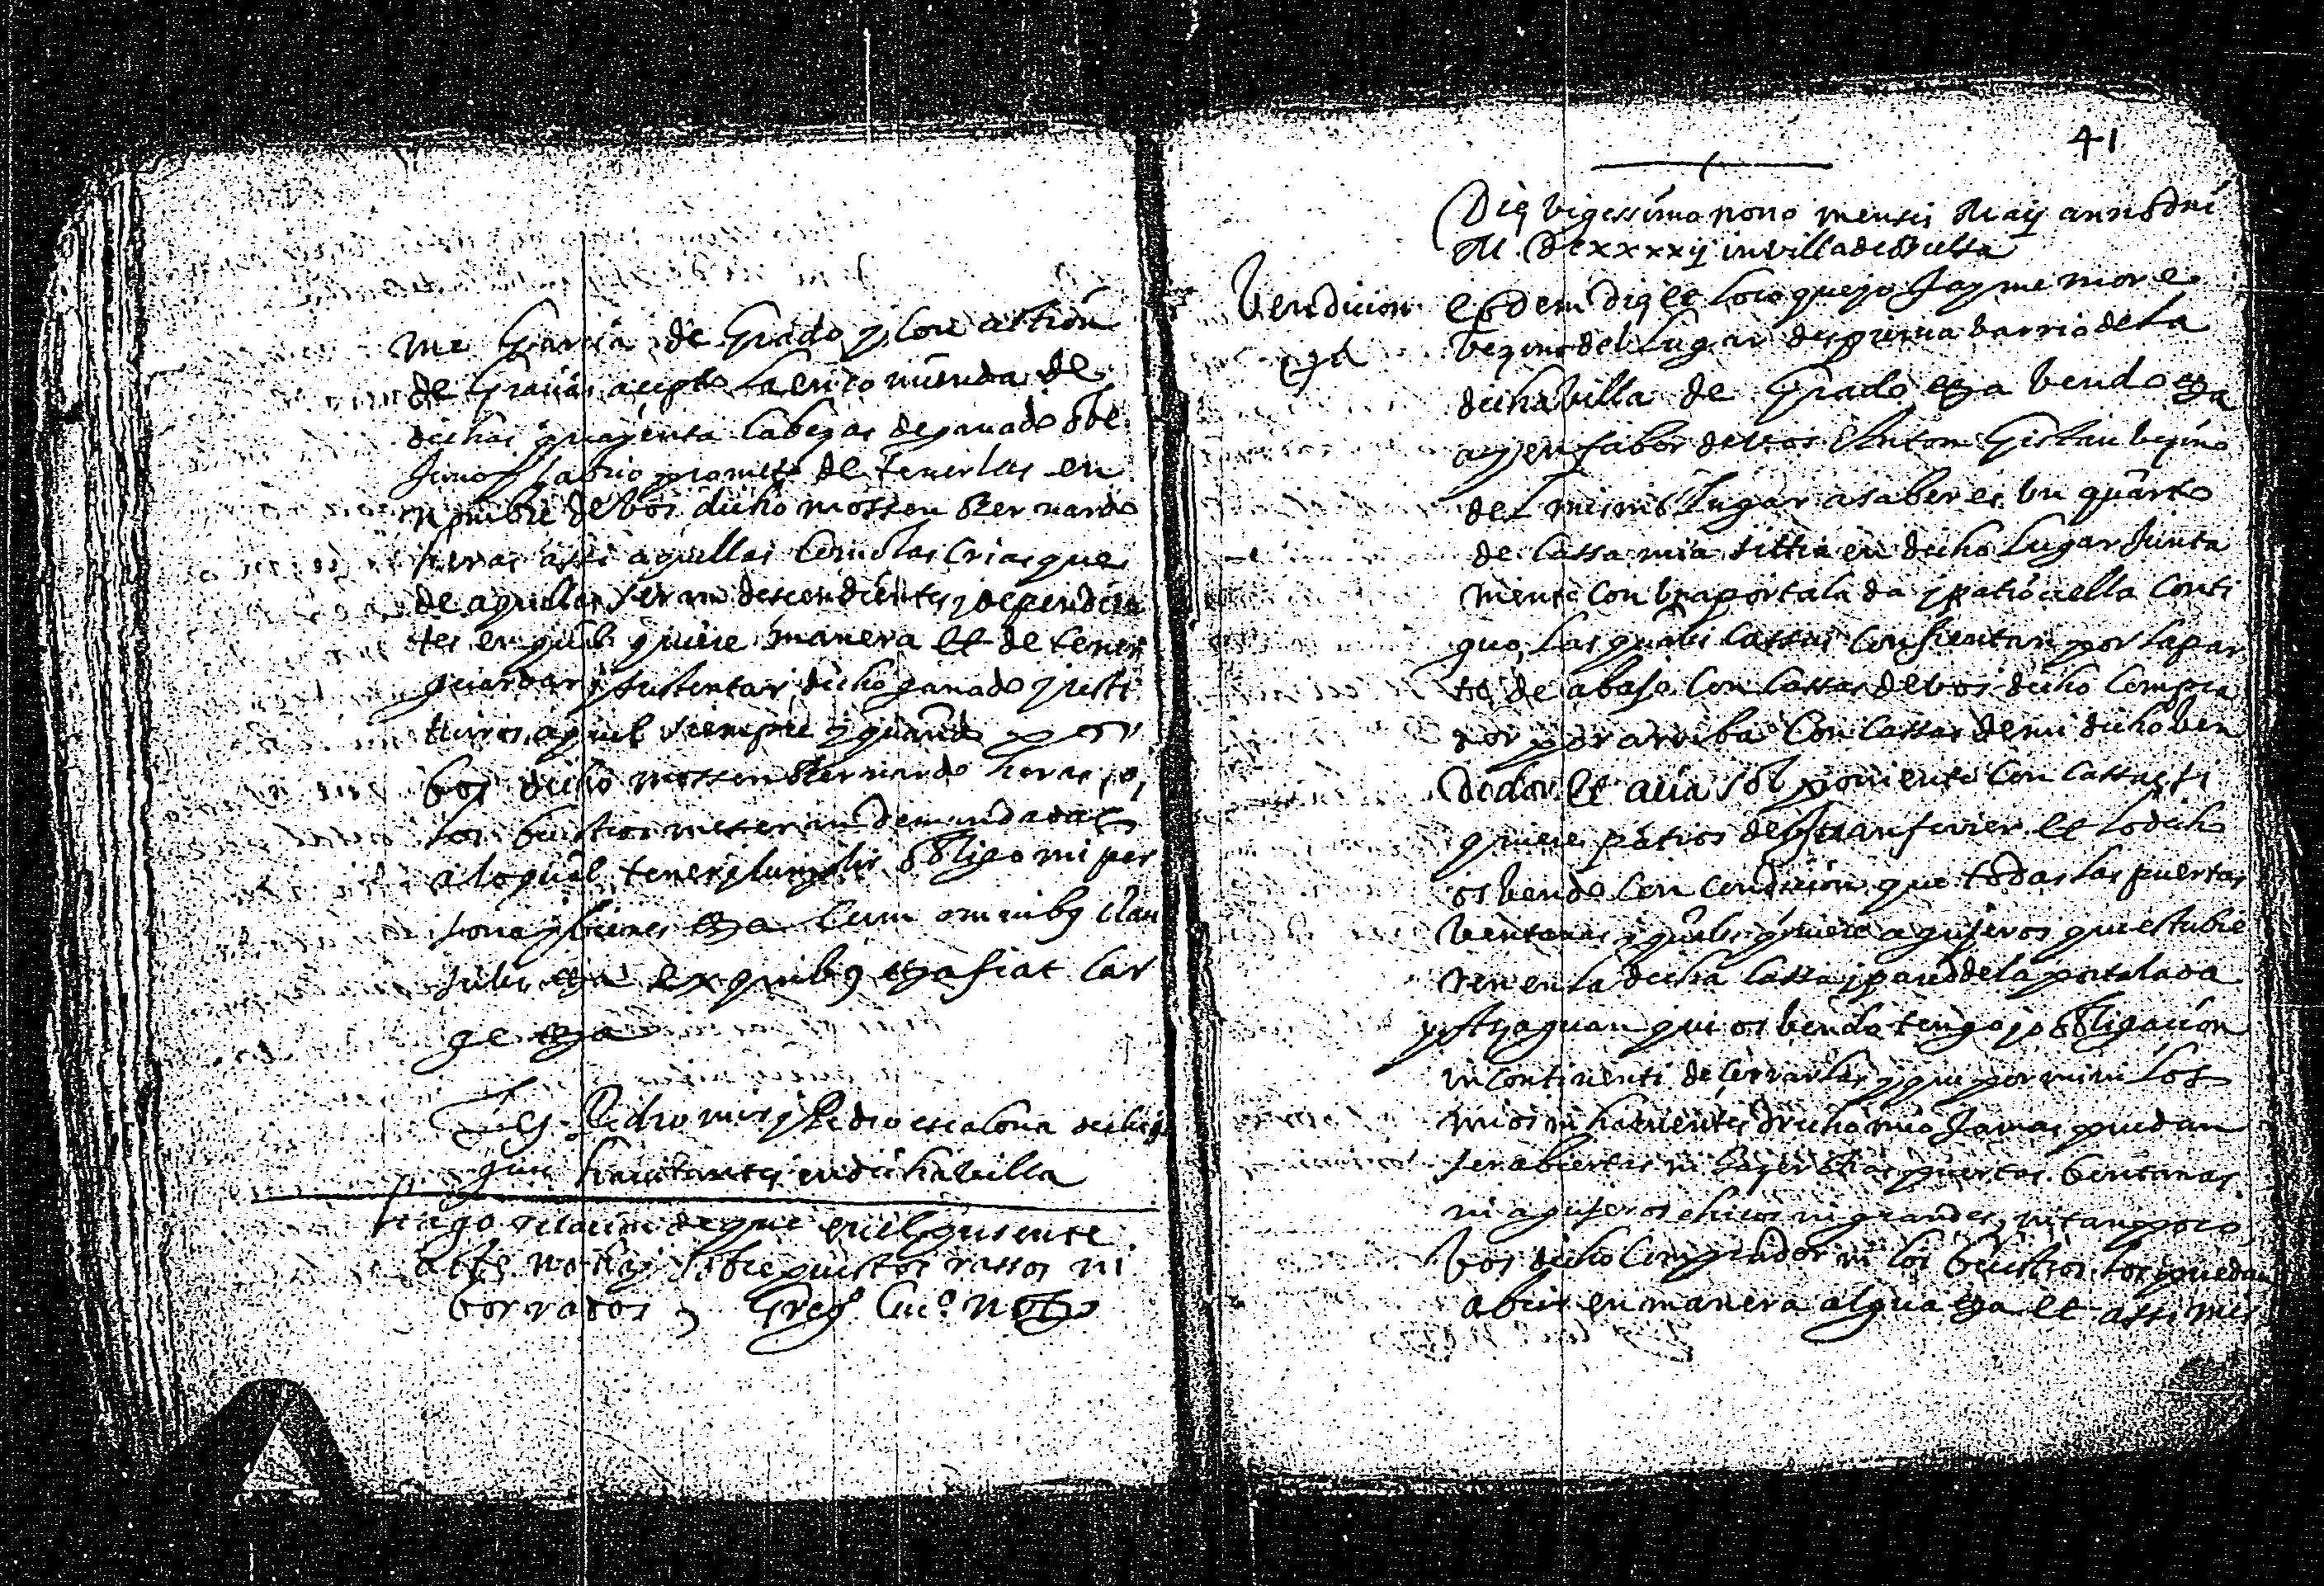 me Garcia de Grado y con actión
de Gracias acepto la encomienda de
dichas quarenta cabezas de ganado obe
juno cabrio prometo de tenerlas en
nombre de bos dicho mossen Bernardo
heras assi aquellas como las crias que
de aquellas seran descendientes y dependien
tes en qualquiere manera et de tener
guardar y sustentar dicho ganado y resti
tuiros aquel siempre y quando por
bos dicho mossen Bernardo heras o,
los buestros me seran demandadas
a lo qual tener y cumplir obligo mi per
sona y bienes &a cum omnibus clau
sulis &a ex quibus &a fiat lar
ge &a
Tes Pedro y Pedro escalona
habitantes en dicha villa
hago relacion de que en el presente
acto no hay sobrepuestos rassos ni
borrados Greg.º not.º
41
Die bigessimo nono mensis Maij anno dni
M. DCxxxxij in villa de
Bendicion eodem die et loco que yo Jayme more
bezino del Lugar de barrio de la
dicha villa de Grado &a bendo &a
a y en fabor de vos Antom Gistau bezino
del mismo Lugar a saber es un quarto
de cassa mia sittia en dicho Lugar Junta
mente con una portalada y patio a ella conti
guo, las quales cassas confrentan por la par
te de abajo con cassas de bos dicho compra
dor por arriba con cassas de mi dicho ben
dedor et acia sol poniente con cassas si
quiere patios de Juan ferrer et lo dicho
os bendo con condicion que todas las puertas
bentanas y quales quiere agujeros que estubie
ren en la dicha cassa y pared de la portalada
y que os bendo tengo yo obligacion
incontinenti de cerrarlas y que por mi ni los
mios ni habientes drecho mio Jamas puedan
ser abiertas ni hazer otras puertas bentanas
ni agujeros chicos ni grandes, ni tampoco
bos dicho comprador ni los buestros los puedan
abrir en manera alguna &a et assi mis